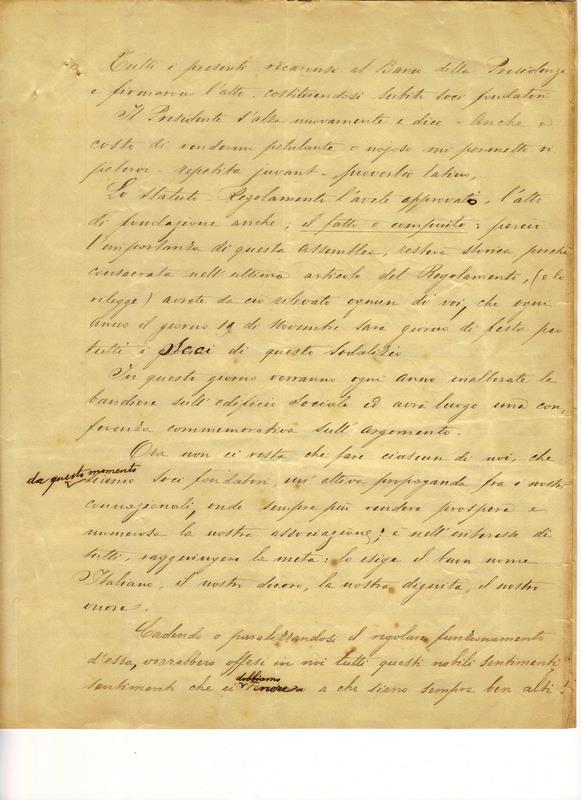 Tutti i presenti recaronsi al Banco della Presidenza
e firmarono l'atto costituendosi subito soci fondatori
Il Presidente s'alza nuovamente e dice - Anche a
costo di rendermi petulante o nojoso mi permetto ri
petervi - repetita juvant - proverbio latino,
Lo Statuto Regolamento l'avete approvato, l'atto
di fondazione anche; il fatto è compiuto: perciò
l'importanza di questa assemblea, resterà storica, perchè
consacrata nell'ultimo articolo del Regolamento, (e lo
rilegge) avrete da ciò rilevato ognun di voi, che ogni
anno il giorno di Novembre sarà giorno di festa per
tutti i Soci di questo Sodalizio
In questo giorno verranno ogni anno inalberate le
bandiere sull'edificio Sociale ed avrà luogo una con-
ferenza commemorativa sull'Argomento.
Ora non ci resta che fare ciascun di noi, che
da questo momento
siamo Soci fondatori, un'attiva propaganda fra i nostri
connazionali, onde sempre più rendere prospera e
numerosa la nostra associazione; è nell'interesse di
tutti, raggiungere la meta: lo esige il buon nome
Italiano, il nostro decoro, la nostra dignità, il nostro
onore.
Cadendo o paralizzandosi il regolare funzionamento
d'essa, verrebbero offesi in noi tutti questi nobili sentimenti
dobbiamo
sentimenti che ci tenere a che sieno sempre ben alti!